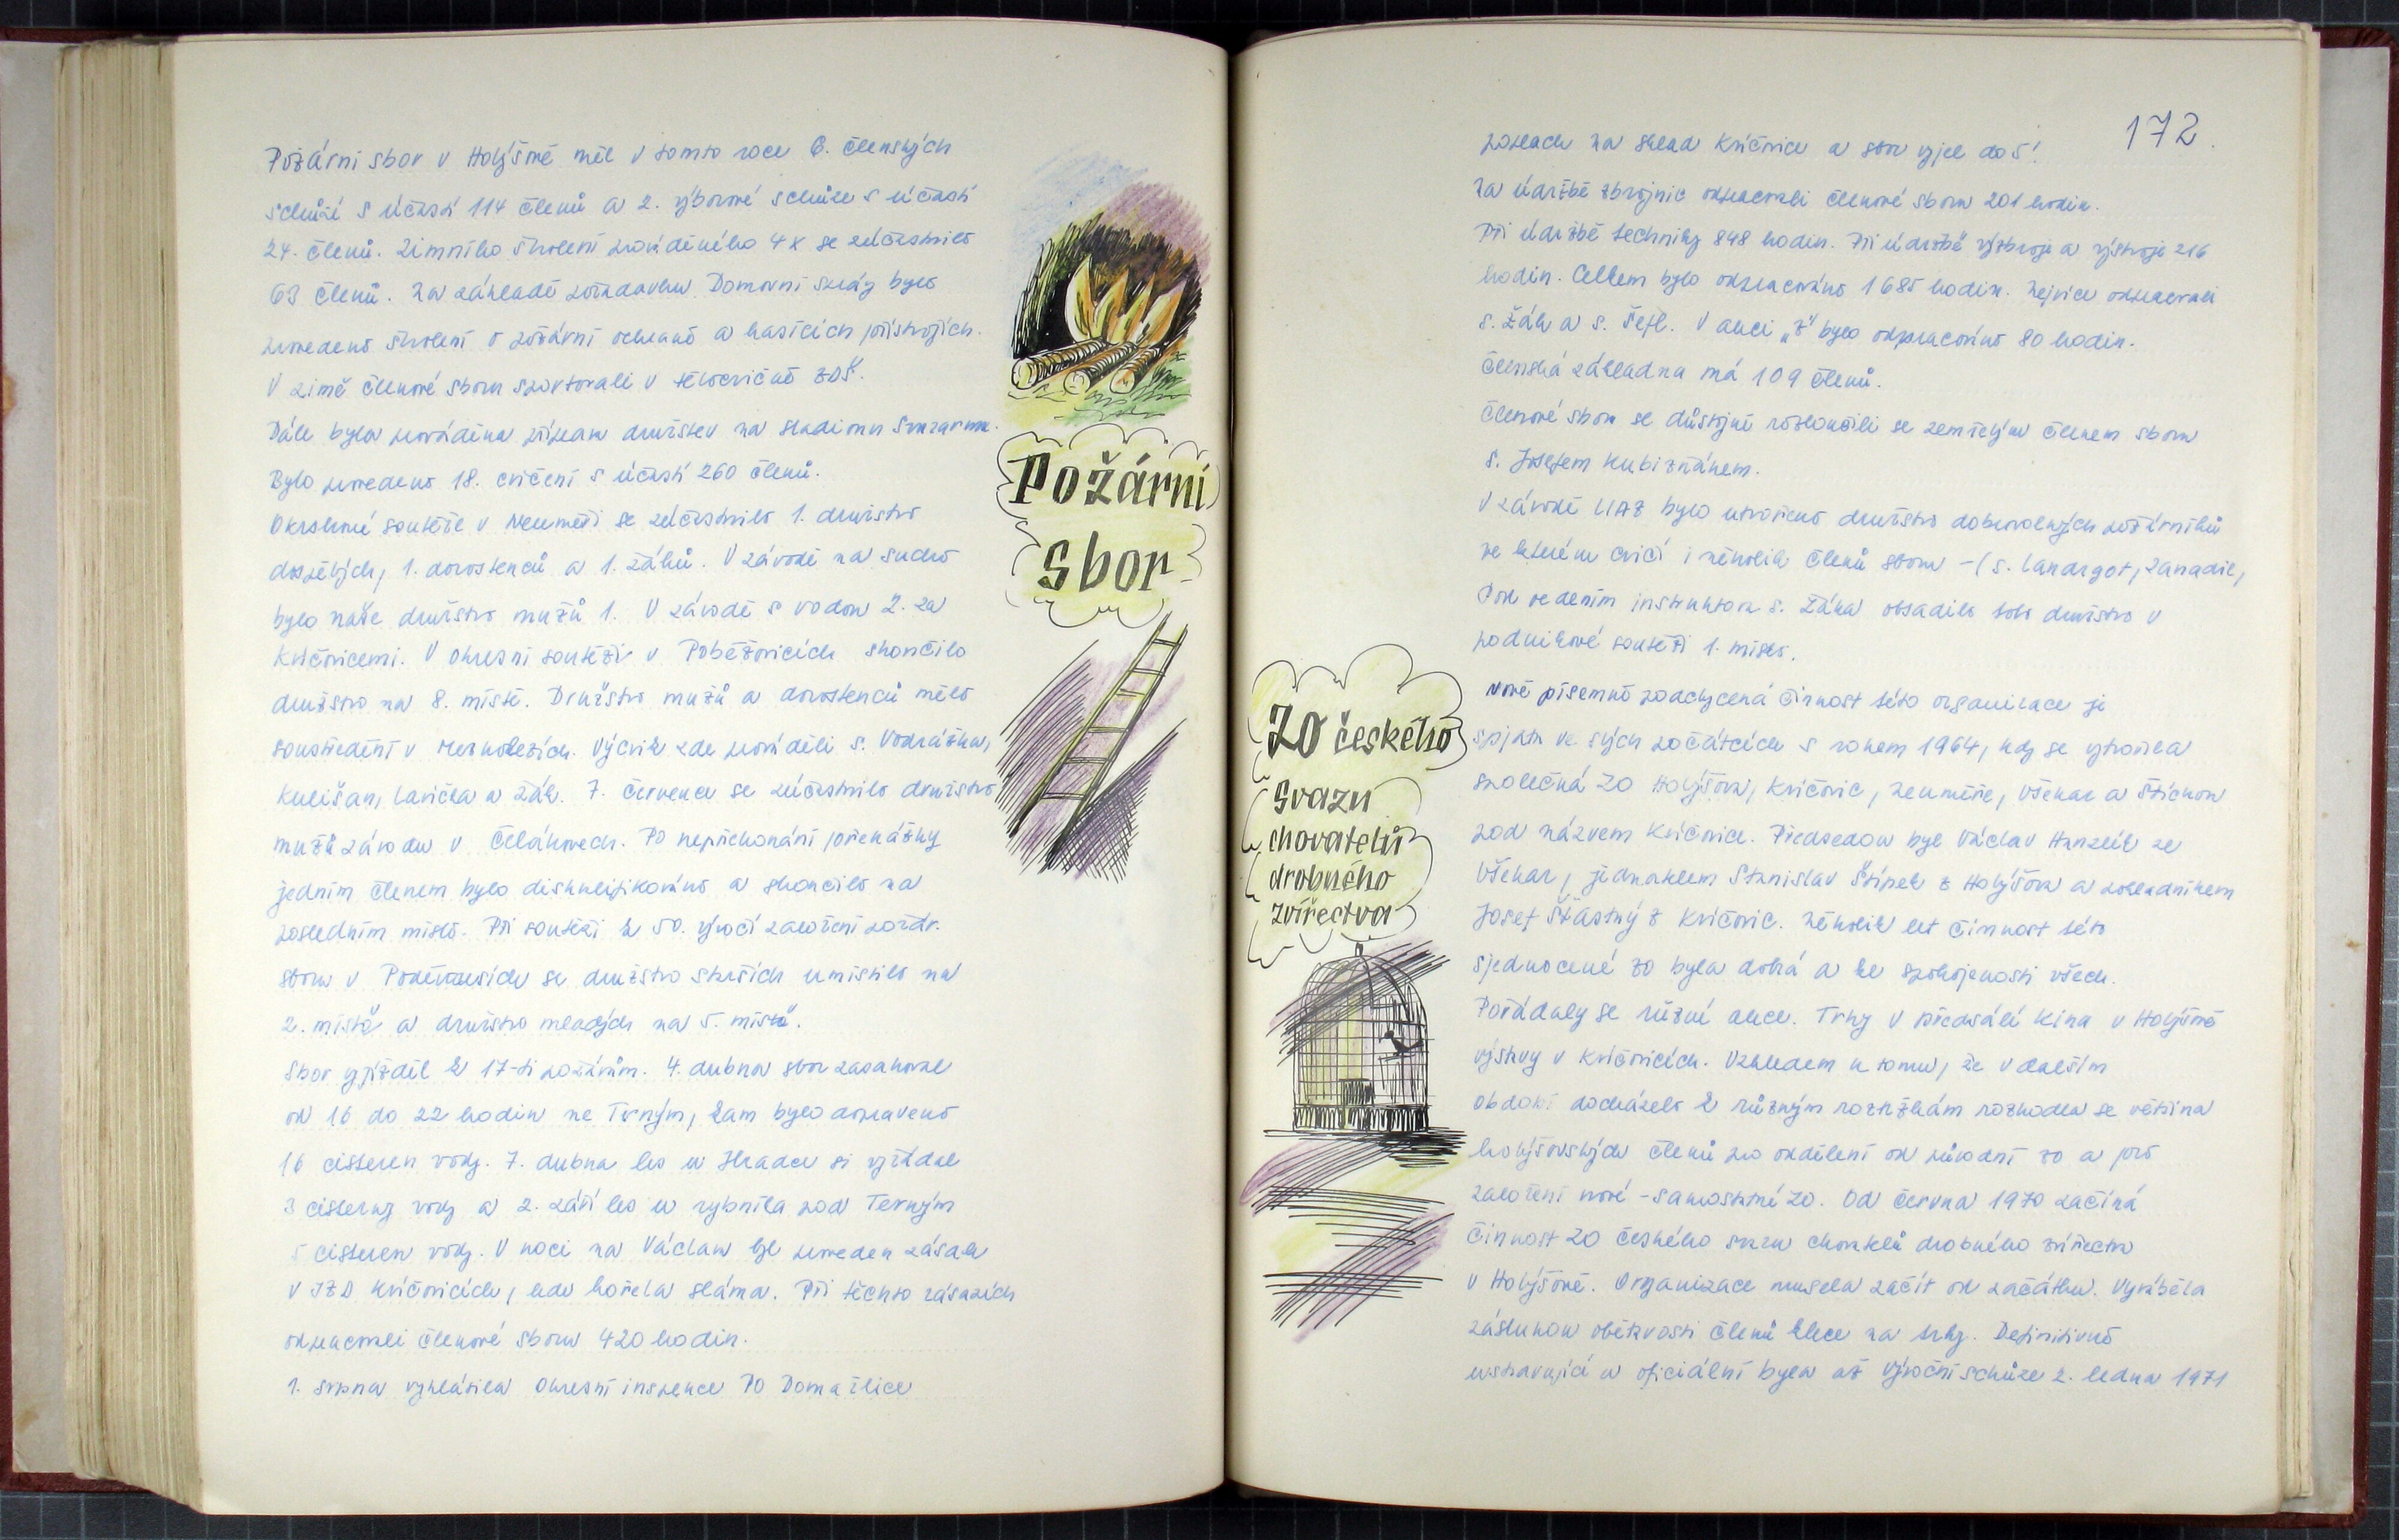 Požární sbor v Holýšově měl v tomto roce 6. členských
schůzí s účastí 114 členů a 2. výborové schůze s účastí
24. členů. Zimního školení prováděného 4x se zúčastnilo
63 členů. Na základě požadavku Domovní správy bylo
provedeno školení o požární ochraně a hasících přístrojích.
V zimě členové sboru sportovali v tělocvičně ZDŠ.
Dále byla prováděna příprava družstev na stadionu Svazarmu.
Bylo provedeno 18. cvičení s účastí 260 členů.
Okrskové soutěže v Neuměři se zúčastnilo 1. družstvo
dospělých, 1. dorostenců a 1. žáků. V závodě na sucho
bylo naše družstvo mužů 1. V závodě s vodou 2. za
Kvíčovicemi. V okresní soutěži v Poběžovicích skončilo
družstvo na 8. místě. Družstvo mužů a dorostenců mělo
soustředění v Meznholezích. Výcvik zde prováděli s. Vodrážka,
Kulišan, Lavička a Žák. 7. července se zúčastnilo družstvo
mužů závodu v Čelákovech. Po nepřekonání překážky
jedním členem bylo diskvalifikováno a skončilo na
posledním místě. Při soutěži k 50. výročí založení požár.
sboru v Poděvousích se družstvo starších umístilo na
2. místě a družstvo mladých na 5. místě.
Sbor vyjížděl k 17-ti požárům. 4. dubna sbor zasahoval
od 16 do 22 hodin ve Trným, kam bylo dopraveno
16 cisteren vody. 7. dubna les u Hradce si vyžádal
3 cisterny vody a 2. září les u rybníka pod Terným
5 cisteren vody. V noci na Václava byl proveden zásah
v JZD Kvíčovicích, kde hořela sláma. Při těchto zásazích
odpracovali členové sboru 420 hodin.
1. srpna vyhlásila Okresní inspekce PO Domažlice
Požární
sbor
172
poplach na sklad Kvíčovice a sbor vyjel do 5!
Na údržbě zbrojnic odpracovali členové sboru 201 hodin.
Při údržbě techniky 848 hodin. Při údržbě výzbroje a výstroje 216
hodin. Celkem bylo odpracováno 1685 hodin. Nejvíce odpracovali
s. Žák a s. Šefl. V akci „Z" bylo odpracováno 80 hodin.
Členská základna má 109 členů.
Členové sboru se důstojně rozloučili se zemřelým členem sboru
s. Josefem Kubizňákem.
V závodě LIAZ bylo utvořeno družstvo dobrovolných požárníků
ve kterém cvičí i několik členů sboru - (s. Landrgot, Zanadil,
Pod vedením instruktora s. Žáka obsadilo toto družstvo v
podnikové soutěži 1. místo.
ZO českého
Svazu
chovatelů
drobného
zvířectva
Nově písemně podchycená činnost této organizace je
spjata ve svých počátcích s rokem 1964, kdy se vytvořila
společná ZO Holýšova, Kvíčovic, Neuměře, Všekar a Štichov
pod názvem Kvíčovice. Předsedou byl Václav Hanzlík ze
Všekar, jednatelem Stanislav Štípek z Holýšova a pokladníkem
Josef Šťastný z Kvíčovic. Několik let činnost této
sjednocené ZO byla dobrá a ke spokojenosti všech.
Pořádaly se různé akce. Trhy v předsálí kina v Holýšově
výstavy v Kvíčovicích. Vzhledem k tomu, že v dalším
období docházelo k různým roztržkám rozhodla se většina
holýšovských členů pro oddělení od původní ZO a pro
založení nové - samostatné ZO. Od června 1970 začíná
činnost ZO českého svazu chovatelů drobného zvířectva
v Holýšově. Organizace musela začít od začátku. Vyráběla
zásluhou obětavosti členů klece na trhy. Definitivně
ustavující a oficiální byla až výroční schůze 2. ledna 1971